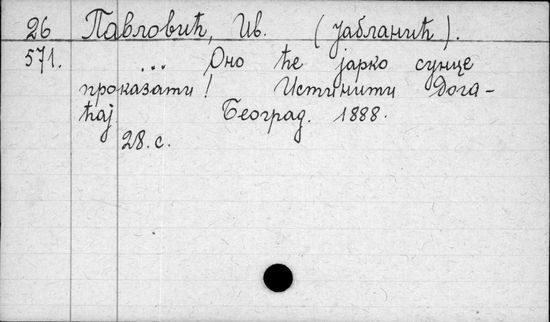 26 Павловић, Ив. (Јабланић).
571. ... Оно ће јарко сунце
проказати! Истинити дога-
ћај Београд. 1888.
28. с.